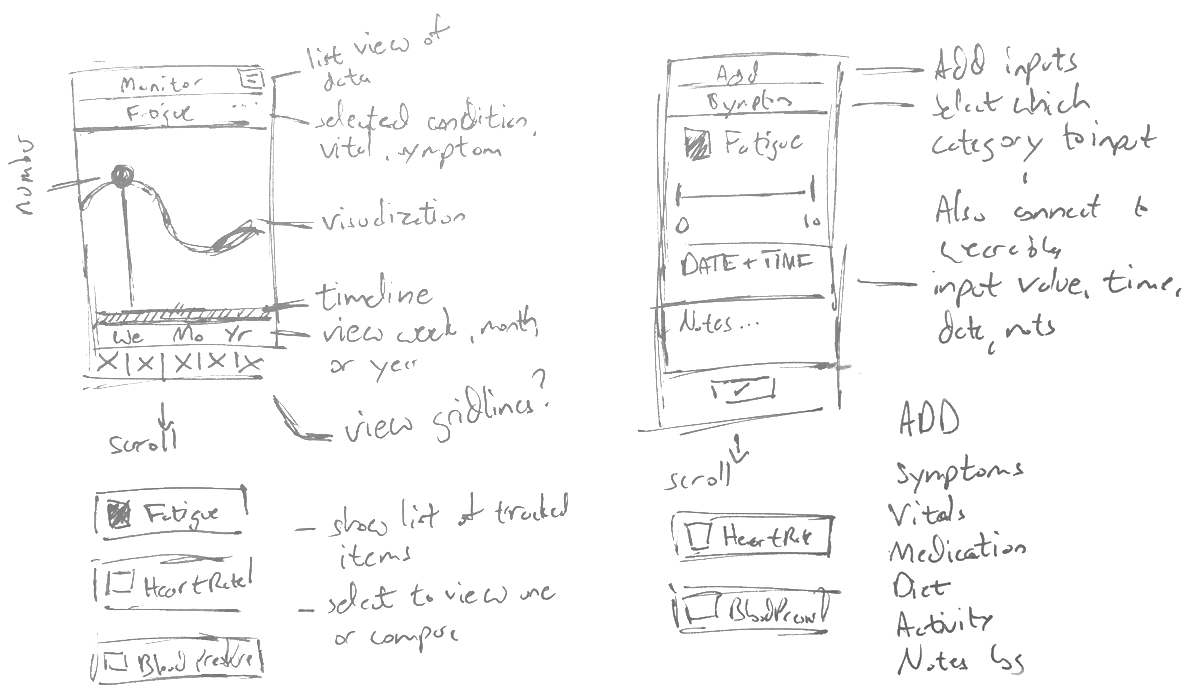 Monitor
Fatigue ...
number
list view of
data
selected condition,
vital, symptom
visualization
timeline
We Mo Yr
view week, month,
or year
X | X | X | X | X
view gridlines?
scroll
Fatigue
Heart Rate
Blood Pressure
- show list of tracked
items
- select to view one
or compare
Add
Symptom
Fatigue
0 10
DATE + TIME
Notes ...
Add inputs
select which
category to input
Also connect to
input value, time,
date, nots
scroll
Heart Rate
ADD
Symptoms
Vitals
Medication
Diet
Activity
Notes log